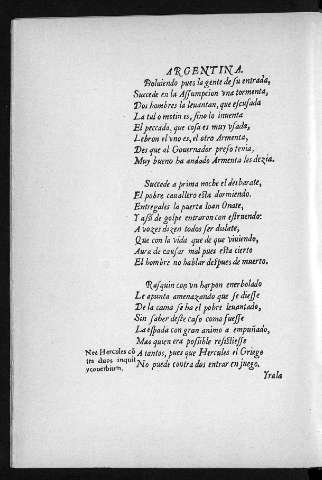 ARGENTINA.
Bolviendo pues la gente de su entrada,
Succede en la Assumpcion vna tormenta,
Dos hombres la leuantan, que escusada
La tal o motin es, sino lo inuenta
El peccado, que cosa es muy vsada,
Lebron el vno es, el otro Armenta,
Des que al Gouernador preso tenia,
Muy bueno ha andado Armenta les dezia.
Succede a prima noche el desbarate,
El pobre cauallero esta dormiendo.
Entregales la puerta Ioan Oñate,
Y assi de golpe entraron con estruendo:
A vozes dizen todos ser dislate,
Que con la vida que de que viuiendo,
Aura de causar mal pues esta cierto
El hombre no hablar despues de muerto.
Rasquin con vn harpon enerbolado
Le apunta amenazando que se diesse
De la cama se ha el pobre leuantado,
Sin saber deste caso como fuesse
La espada con gran animo a empuñado,
Mas quien era possible resistiesse
Nec Hercules cõ
tra duos inquit
ycouerbium.
A tantos, pues que Hercules el Griego
No puede contra dos entrar en juego.
Yrala